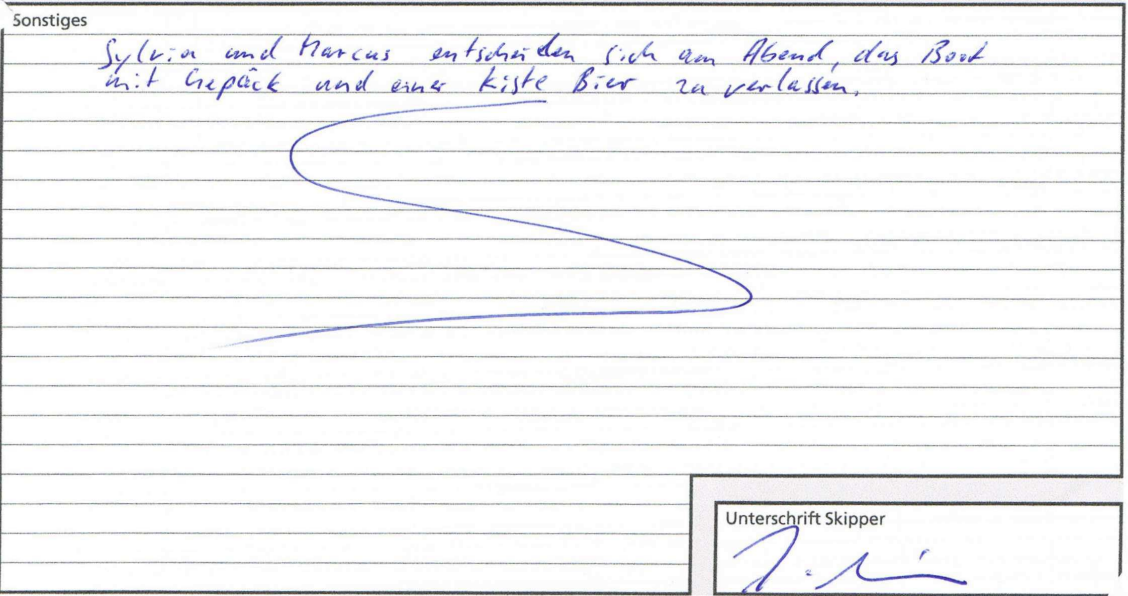 Sonstiges
Sylvia und Marcus entscheiden sich am Abend, das Boot
mit Gepäck und einer Kiste Bier zu verlassen.
Unterschrift Skipper